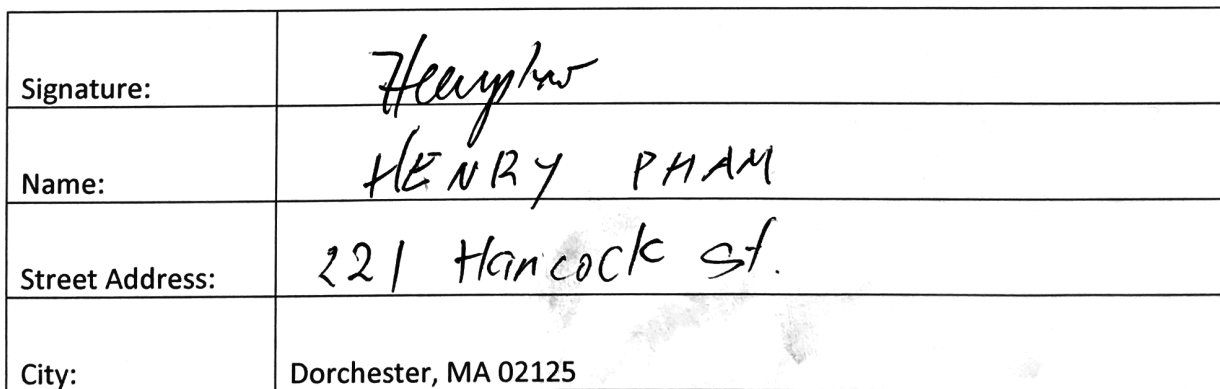 Signature:
Name: HENRY PHAM
Street Address: 221 Hancock St.
City: Dorchester, MA 02125